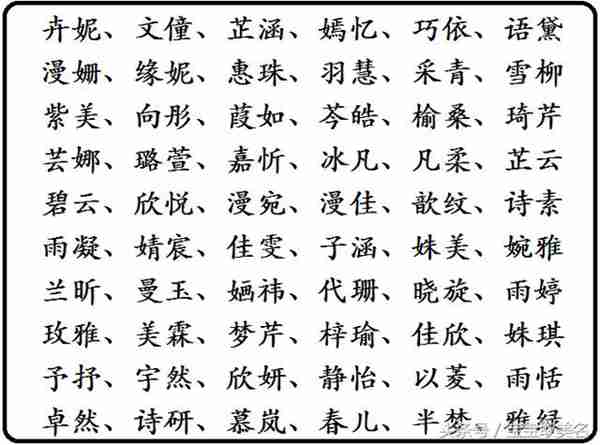 卉妮、文僮、芷涵、嫣忆、巧依、语黛
漫姗、缘妮、惠珠、羽慧、采青、雪柳
紫美、向彤、葭如、芩皓、榆桑、琦芹
芸娜、璐萱、嘉忻、冰凡、凡柔、芷云
碧云、欣悦、漫宛、漫佳、歆纹、诗素
雨凝、婧宸、佳雯、子涵、姝美、婉雅
兰昕、曼玉、婳祎、代珊、晓旋、雨婷
玫雅、美霖、梦芹、梓瑜、佳欣、姝琪
予抒、宇然、欣妍、静怡、以菱、雨恬
卓然、诗研、慕岚、春儿、半梦、雅绿
头条号